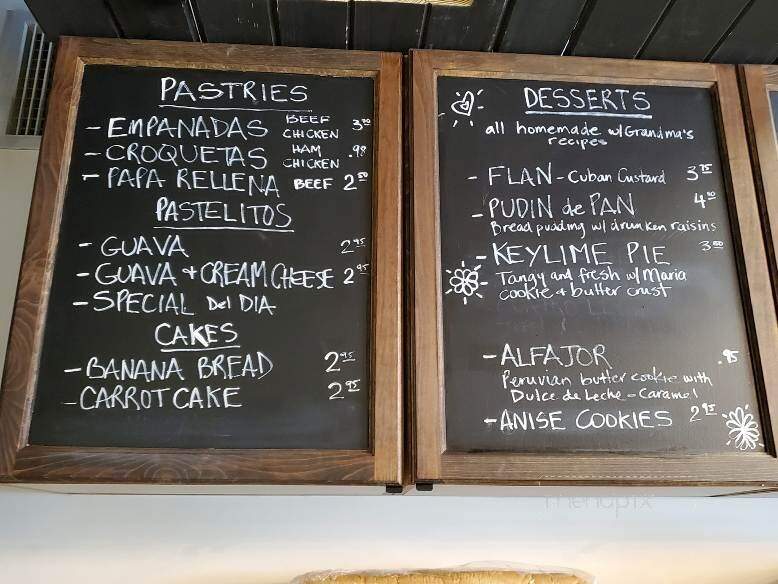 PASTRIES
- EMPANADAS BEEF CHICKEN
- CROQUETAS HAM CHICKEN .98
- PAPA RELLENA BEEF 2.50
PASTELITOS
- GUAVA 2.95
- GUAVA + CREAM CHEESE 2.95
- SPECIAL Del DIA
CAKES
- BANANA BREAD 2.95
- CARROT CAKE 2.95
DESSERTS
all homemade w/Grandma's
recipes
- FLAN - Cuban Custard 3.75
- PUDIN de PAN 4.50
Bread pudding w/ drunken raisins
- KEYLIME PIE 3.50
Tangy and fresh w/ Maria
cookie & butter crust
- ALFAJOR .95
Peruvian butter cookie with
Dulce de Leche - Caramel
- ANISE COOKIES 2.95
menupix